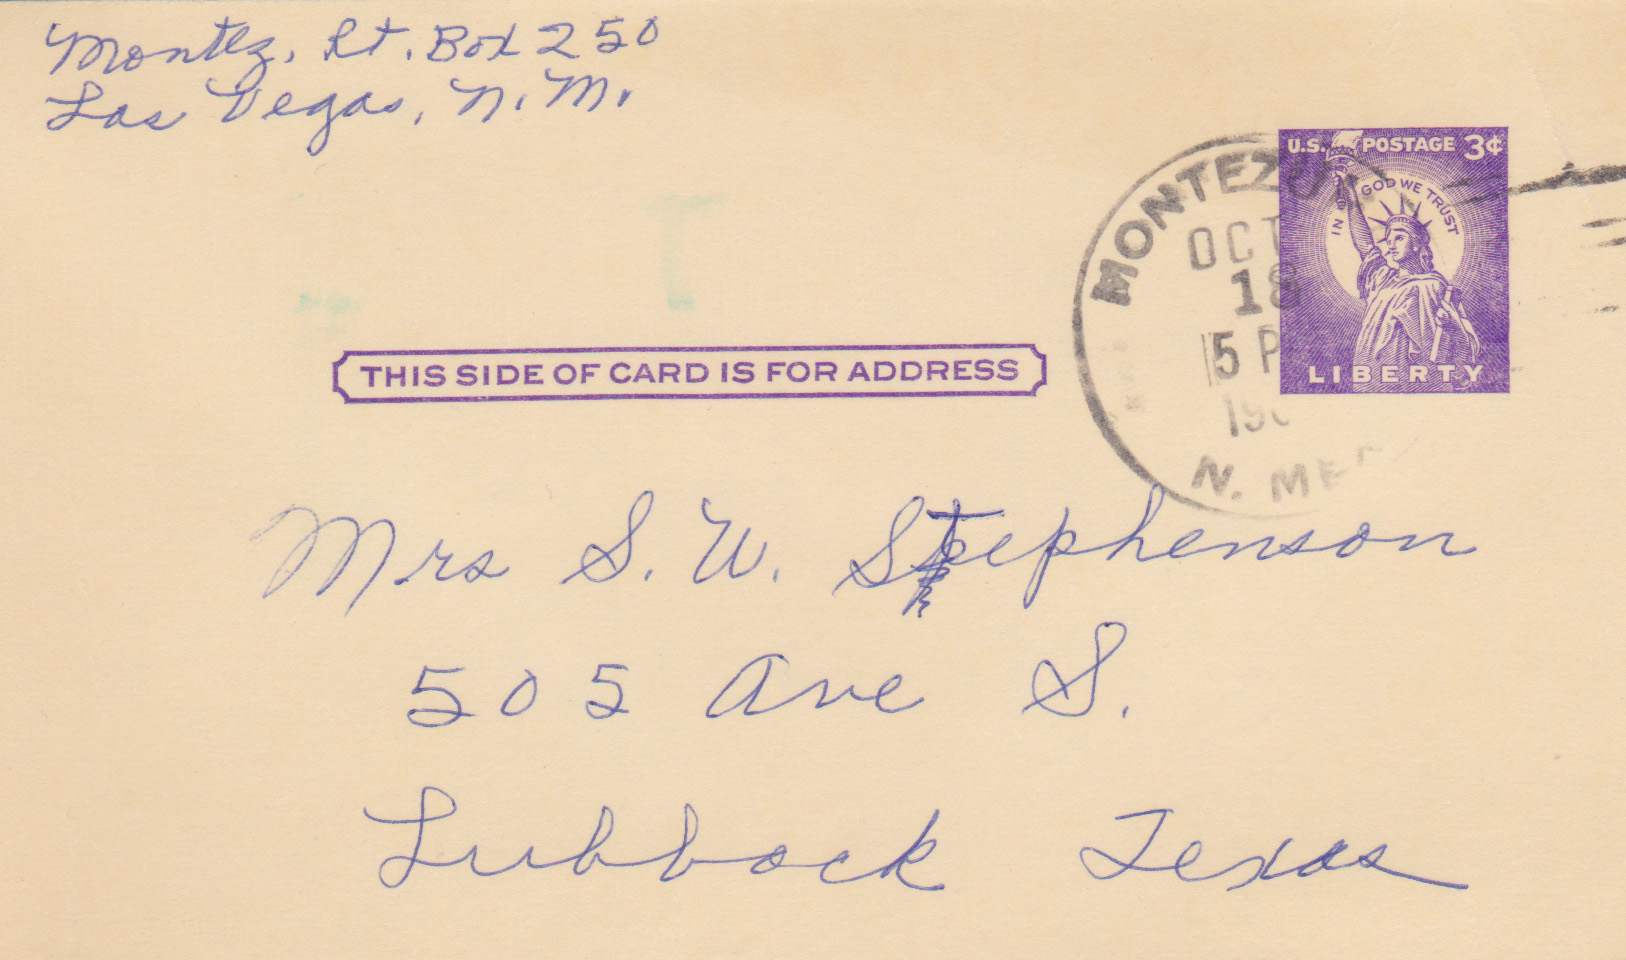 Montez, Rt. Box 250
Las Vegas, N.M.
U.S. POSTAGE 3¢
IN GOD WE TRUST
LIBERTY
OCT
18
5 P
N. MEX
THIS SIDE OF CARD IS FOR ADDRESS
Mrs S. W. Stephenson
505 Ave S.
Lubbock Texas